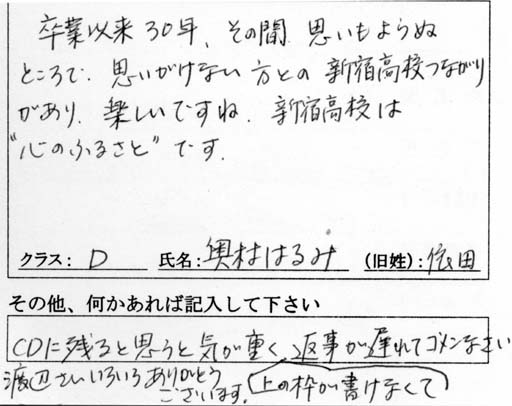 卒業以来30年、その間 思いもよらぬ
ところで、思いがけない方との新宿高校つながり
があり、楽しいですね。新宿高校は
"心のふるさと"です。
クラス: D 氏名: 奥村はるみ (旧姓): 依田
その他、何かあれば記入して下さい
CDに残ると思うと気が重く、返事が遅れてゴメンなさい
渡辺さんいろいろありがとう
ございます。 (上の枠が書けなくて)